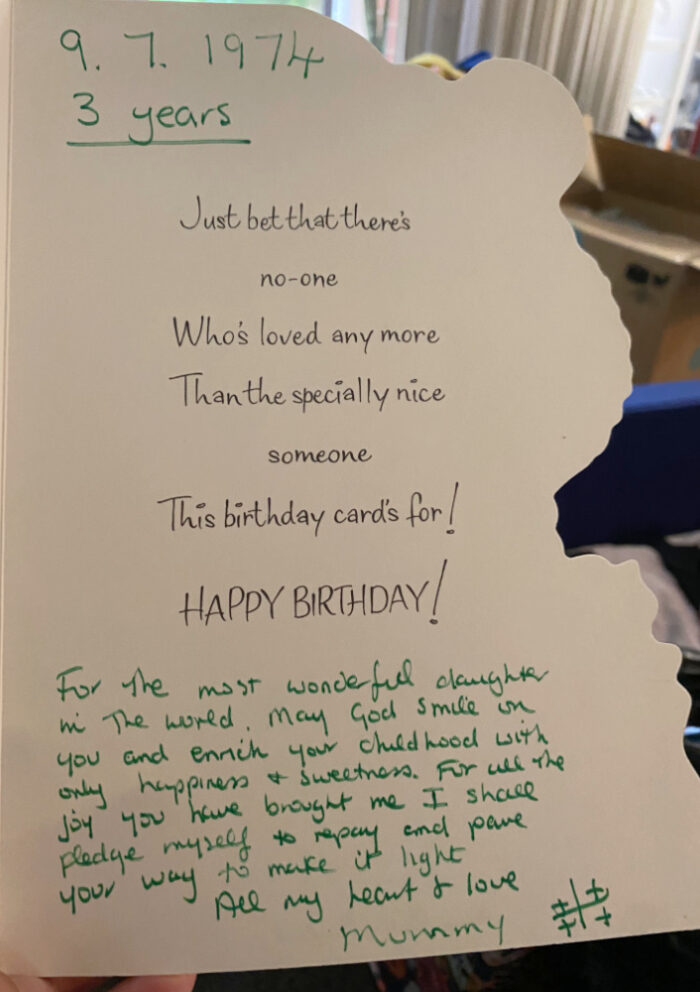 9. 7. 1974
3 years
Just bet that there's
no-one
Who's loved any more
Than the specially nice
someone
This birthday card's for!
HAPPY BIRTHDAY!
For the most wonderful daughter
in the world. May God smile on
you and enrich your childhood with
only happiness & sweetness. For all the
joy you have brought me I shall
pledge myself to repay and pave
your way to make it light
All my heart & love
Mummy